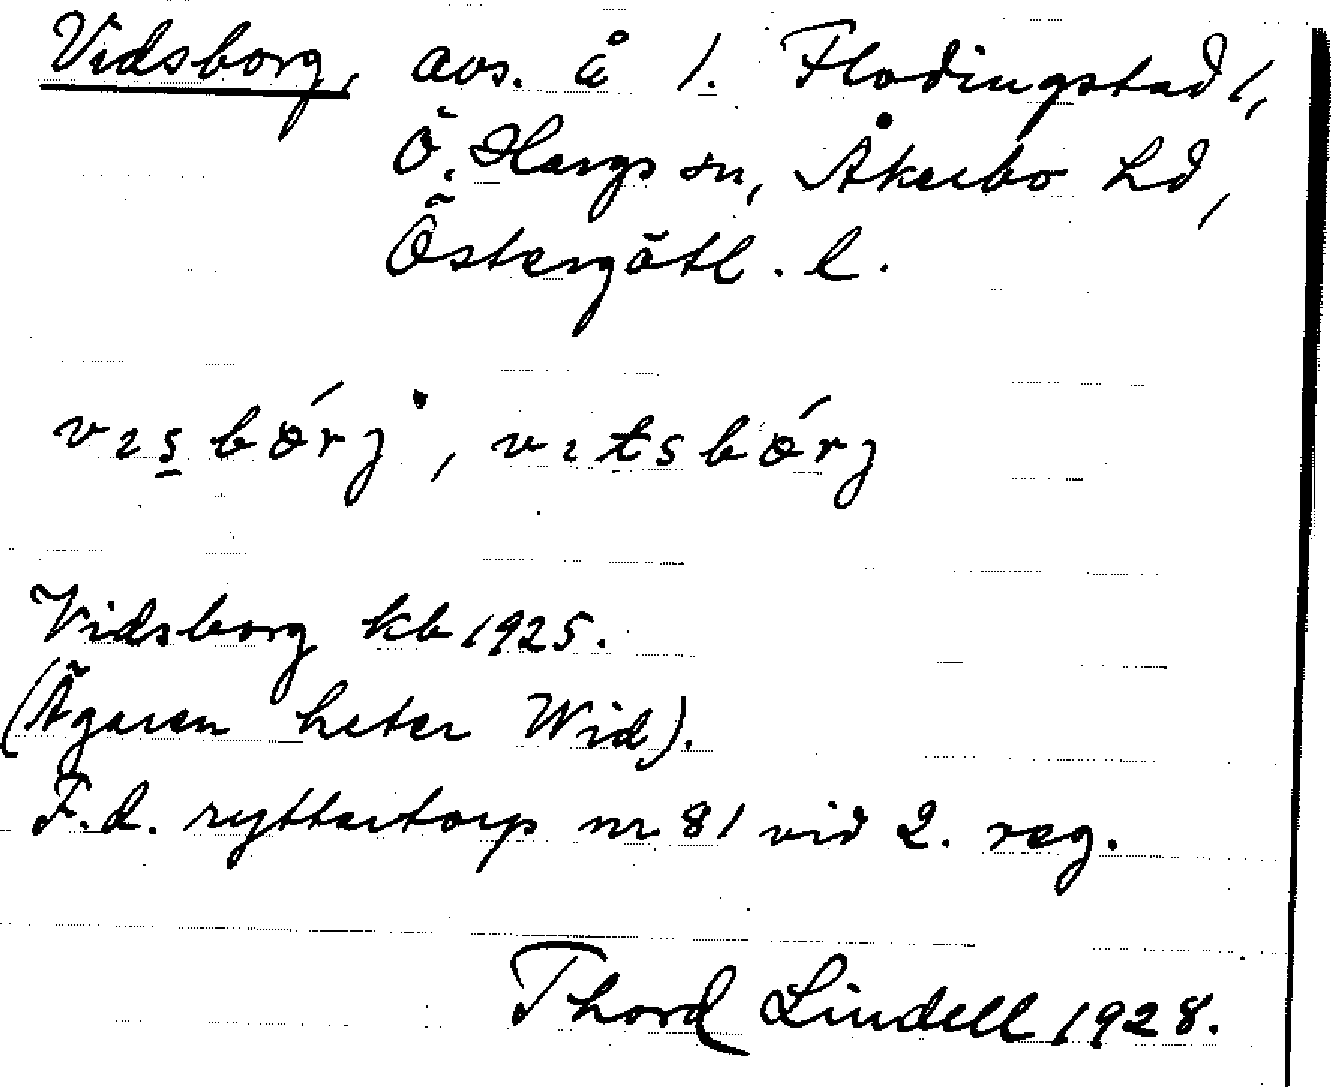 Vidsborg, avs. å 1. Flodingstad 1,
Ö. Hargs sn, Åkerbo hd,
Östergötl. l.
vɩs̲bǿrj, vɩtsbǿrj
Vidsborg kb 1925.
(Ägaren heter Wid).
F.d. ryttartorp nr 81 vid 2. reg.
Thord Lindell 1928.